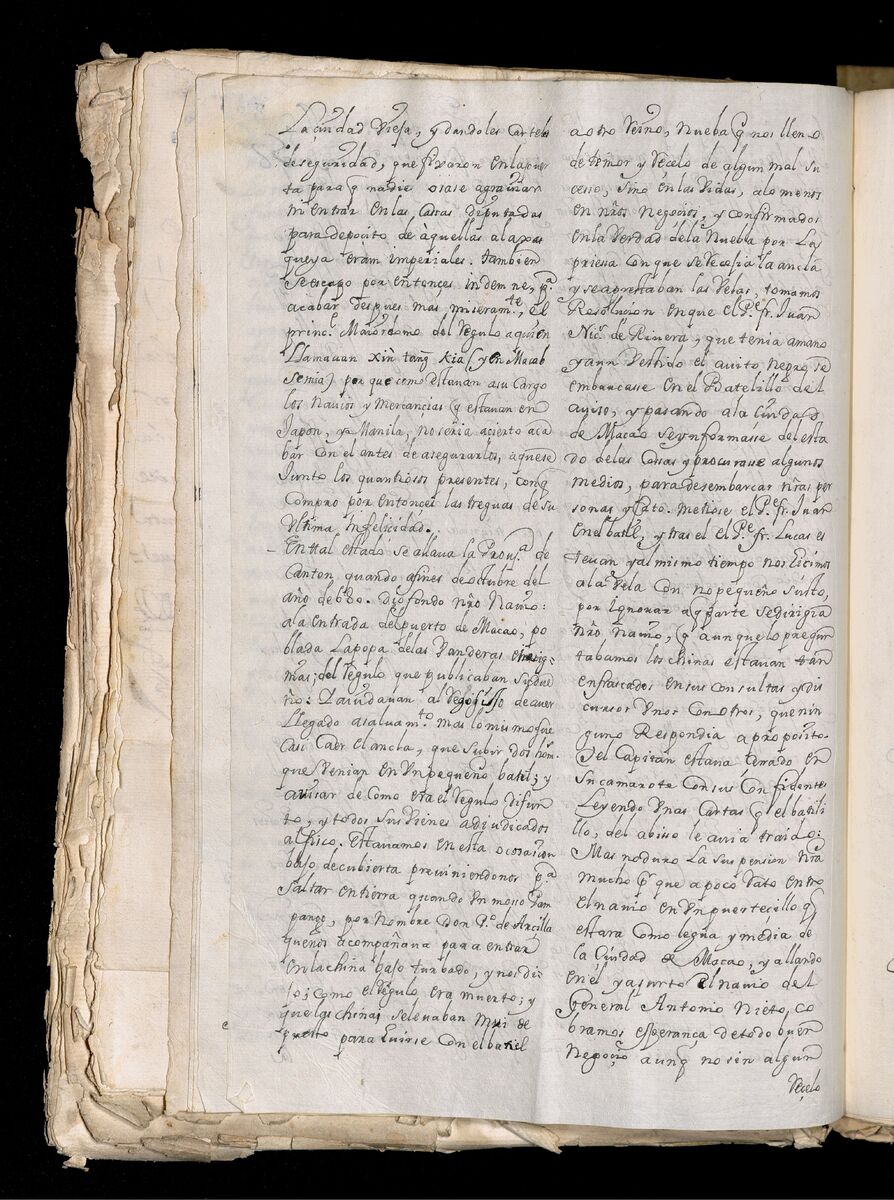 La ciudad Vieja, y dandoles carteles
de seguridad, que fixaron en la puer
ta para q nadie osase agraviar
ni entrar en las Cassas diputadas
para deposito de àquellas alaxas
que ya eran imperiales. tambien
se escapo por entonces indemne, pª
acabar despues mas miseramte, El
princl. Maiordomo del Regulo aquien
Llamauan xin tang kia (y en Macab
Semia) por que como estauan asu Cargo
los Nauios y Mercancias q estauan en
Japon, y a Manila, no seria acierto aca
bar con el antes de asegurarlos, aquese
Junto los quantiosos presentes, conq
Compro por entonces las treguas de su
Vltima infelicidad.
En tal estado se allaua la Prouª. de
Canton, quando afines de octubre del
año de 680. dio fondo nrõ Nauio:
ala entrada del puerto de Macao, po
blada La popa de las Vanderas ensig=
nias; del Regulo que publicaban su due
ño: Saludauan al Regosijo de auer
Llegado asaluamto. mas lo mismo fue
Casi Caer el ancla, que subir dos hom
que Venian en Vn pequeño batel; y
auisar de Como era el Regulo difun
to, y todos sus Vienes adjudicados
al fisco. Estauamos en esta ocasion
bajo de cubierta preuiniendonos pª
Saltar en tierra quando Vn mosso Pam
pango, por Nombre Don Pº. de Arcilla
que nos acompañaua para entrar
en la china bajo turbado, y nos di
jo; Como el Regulo era muerto; y
que los chinas se leuaban mui de
presto para Huirse con el batel
aotro Reino, Nueba q nos lleno
de temor y Recelo de algun mal su
cesso, Sino en las Vidas, alo menos
en nrõs Negocios, y Confirmados
en la Verdad de la Nueba por La
priessa con que se Recojia la ancla
y se aprestaban las Velas, tomamos
Resolucion en que el Pe. fr. Juan
Nics. de Rivera, que tenia amano
y aun Vestido el auito Negro, se
embarcasse en el Batelillo del
auiso, y pasando a la Ciudad
de Macao se ynformasse del esta
do de las Cosas y procurase algunos
medios, para desembarcar nrãs per
sonas y ato. Metiose el Pe. fr. Juan
en el batel, y tras el el Pe. fr. Lucas es
teuan y al mismo tiempo nos hicimos
ala Vela con no pequeño susto,
por ignorar aq parte se dirigia
nrõ Nauio, q aunque lo pregun
tabamos los chinas estauan tan
enfrascados en sus consultas y dis
cursos Vnos con otros, que nin
guno Respondia a proposito.
Y el Capitan estaua Çerrado en
su camarote con sus Confidentes
Leyendo Vnas Cartas q el bateli
llo, del abiso le auia traido:
Mas no duro La suspension nrã
mucho pr que a poco rato entro
el nauio en Vn puertecillo q
estara como legua y media de
la Ciudad de Macao, y allando
en el ya surto el nauio del
General Antonio Nieto, co
bramos esperança de todo buen
Negocio aunq no sin algun
Reçelo